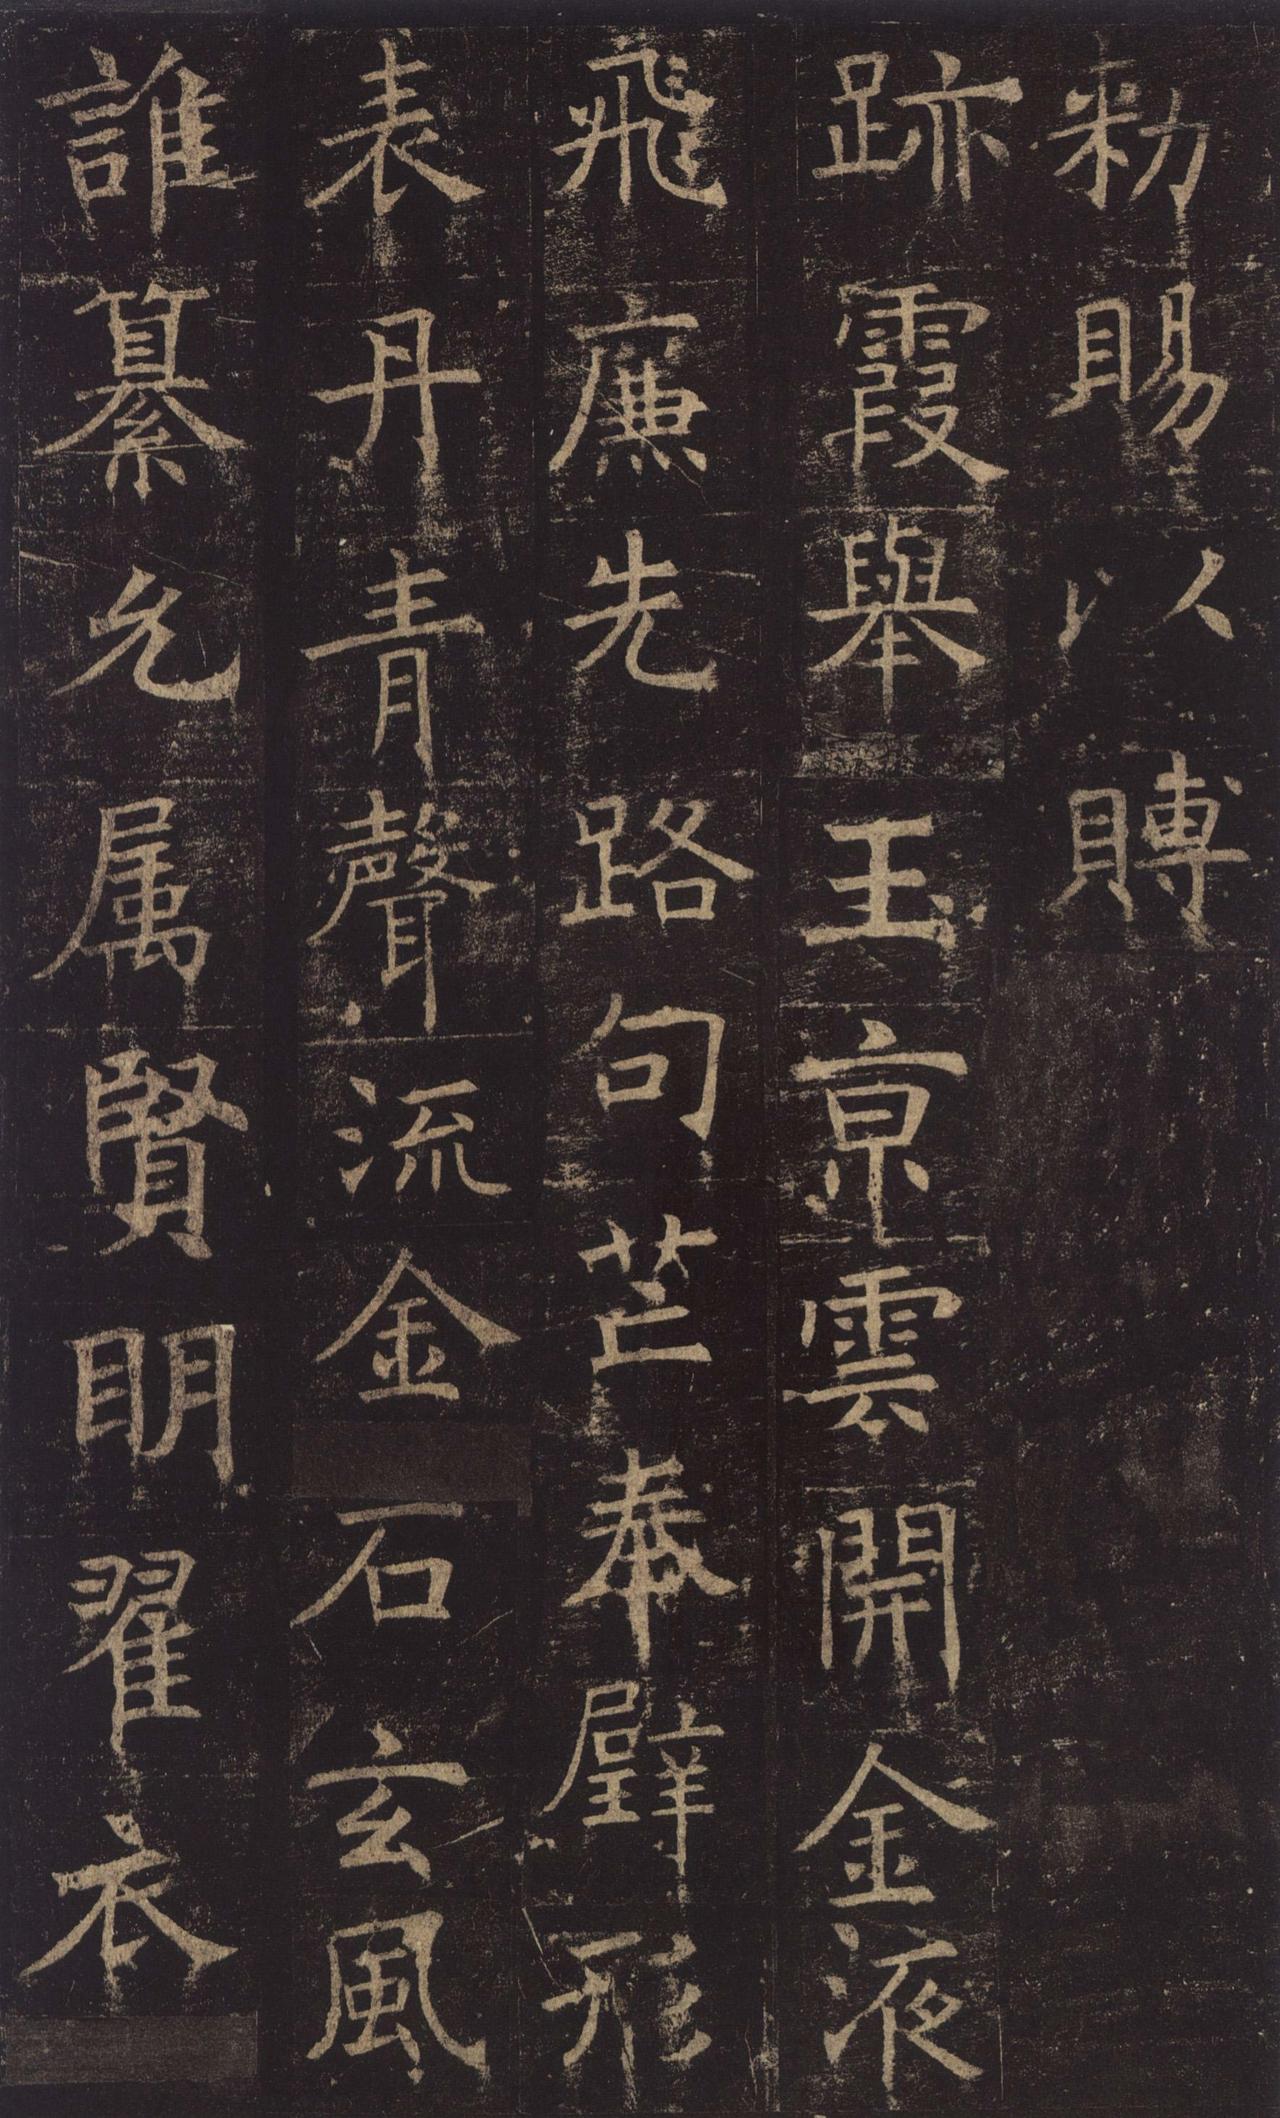 勑賜以賻
跡霞舉玉亰雲開金液
飛廉先路句芒奉璧形
表丹青聲流金石玄風
誰纂允属賢眀翟衣